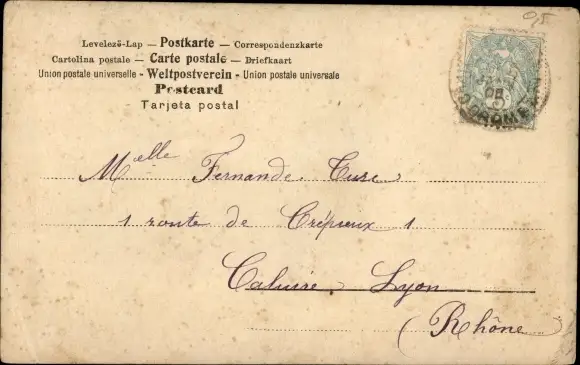 0,5
Levelező-Lap — Postkarte — Correspondenzkarte
Cartolina postale — Carte postale — Briefkaart
Union postale universelle - Weltpostverein - Union postale universale
Postcard
Tarjeta postal
5
DROME
Melle Fernande Cuse
1 route de Crépieux 1
Caluire Lyon
(Rhône